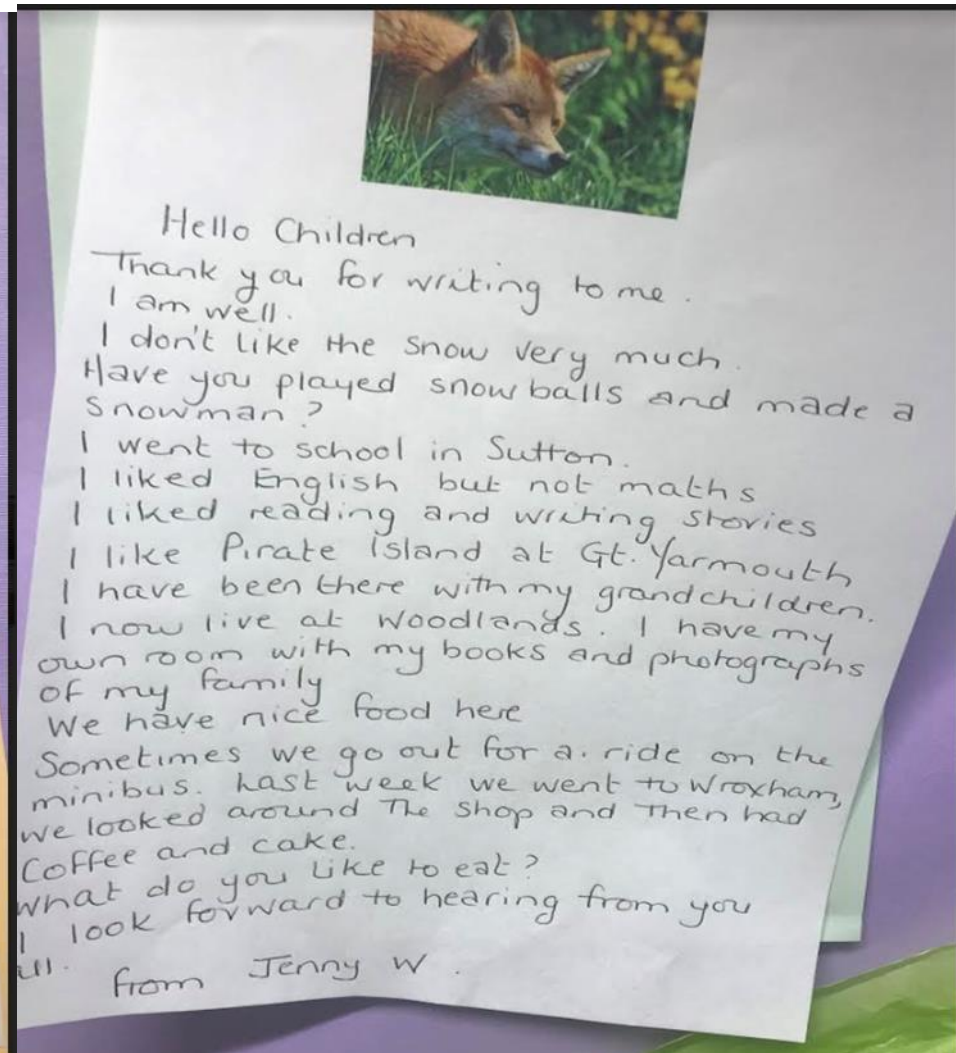 Hello Children
Thank you for writing to me.
I am well.
I don't like the snow very much.
Have you played snowballs and made a
snowman?
I went to school in Sutton.
I liked English but not maths
I liked reading and writing stories
I like Pirate Island at Gt. Yarmouth
I have been there with my grandchildren.
I now live at Woodlands. I have my
own room with my books and photographs
of my family
We have nice food here
Sometimes we go out for a ride on the
minibus. Last week we went to Wroxham,
we looked around The shop and Then had
Coffee and cake.
What do you like to eat?
I look forward to hearing from you
all.
from Jenny W.